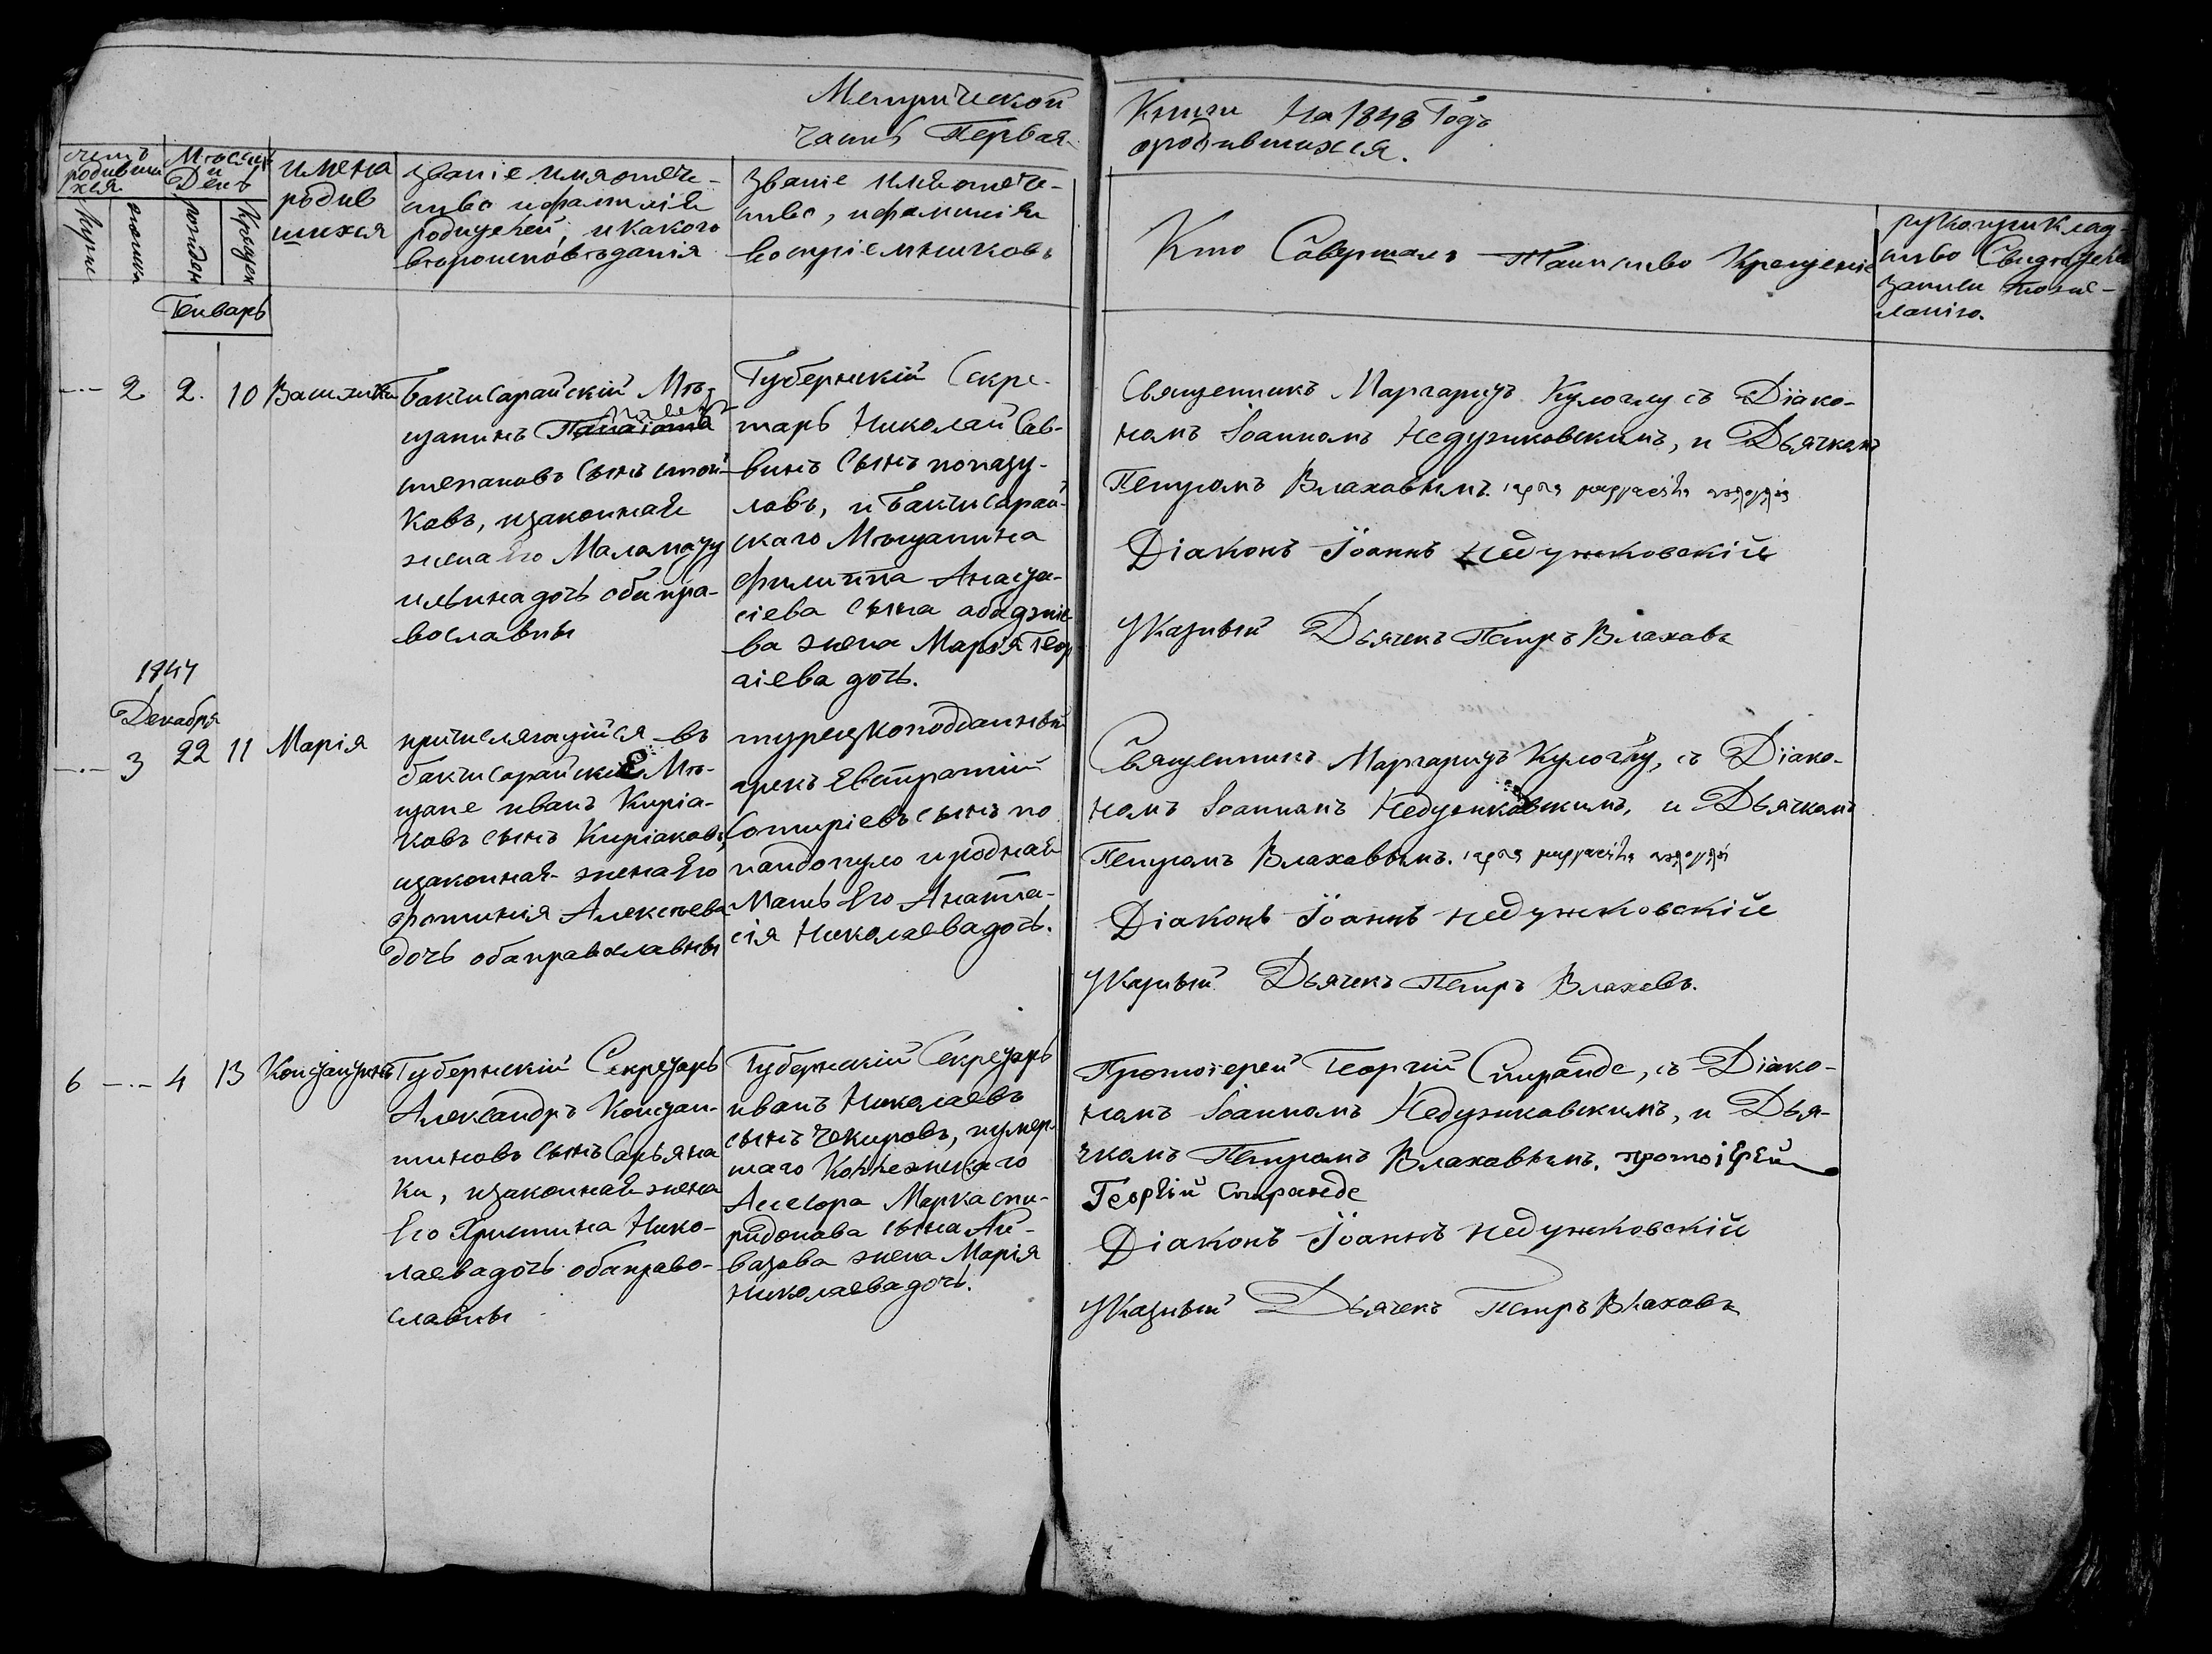 Метрической
часть Первая
Книги На 1848 Годъ
ородившихся.
счетъ родившихся
Мужск
женски
Месяцъ и День
рожден
Крещен
имена
родив
шихся
званіе имя отече-
ство и фамилія
родителей, и какого
вероисповѣданія
Званіе имя отече-
ство, и фамилія
восприемниковъ
Кто Совершалъ Таинство Крещенія
рукоприклад-
ство Свидетелей
записи по жѣ-
ланію.
Генварь
2 2. 10 Василики
Бакчисарайскій Мѣ-
щанинъ
степановъ Сынъ стой-
ковъ, и законная
жена Его Маламату
ильина дочь оба пра-
вославны
Губернскій Секре-
тарь Николай Сав-
винъ Сынъ попазу-
ловъ, и Бакчисарай-
скаго Мѣщанина
филиппа Анаста-
сіева Сына абаджіе-
ва жена Марія Геор
гіева дочь.
Священникъ Маргаритъ Кулоглу съ Діако-
номъ Іоанномъ Недужковскимъ, и Дьячкомъ
Петромъ Влаховымъ.
Діаконъ Іоаннъ Недужковскій
Указный Дьячекъ Петръ Влаховъ
1847
Декабря
3 22 11 Марія
причисляющійся въ
бакчисарайскіе Мѣ-
щане иванъ Киріа-
ковъ сынъ Киріаковъ,
и законная жена Его
фотинія Алексѣева
дочь оба православны
турецкоподданный
грекъ Евстратій
Сотиріевъ сынъ по
пандопуло и родная
Мать Его Анаста-
сія Николаева дочь.
Священникъ Маргаритъ Кулоглу, съ Діако-
номъ Іоанномъ Недужковскимъ, и Дьячкомъ
Петромъ Влаховымъ.
Діаконъ Іоаннъ недужковскій
Указный Дьячекъ Петръ Влаховъ.
6 4 13 Константинъ
Губернскій Секретарь
Александръ Констан-
тиновъ Сынъ Сарьяна
ки, и законная жена
Его Христина Нико-
лаева дочь оба право-
славны
Губернскій Секретарь
иванъ Николаевъ
сынъ Чекировъ, и умер-
шаго Коллежскаго
Ассесора Марка спи-
ридонова сына Ай-
вазова жена Марія
Николаева дочь.
Протоіерей Георгій Спиранде, съ Діако-
номъ Іоанномъ Недужковскимъ, и Дья-
чкомъ Петромъ Влаховымъ. протоіерей
Георгій Спиранде
Діаконъ Іоаннъ недужковскій
Указный Дьячекъ Петръ Влаховъ